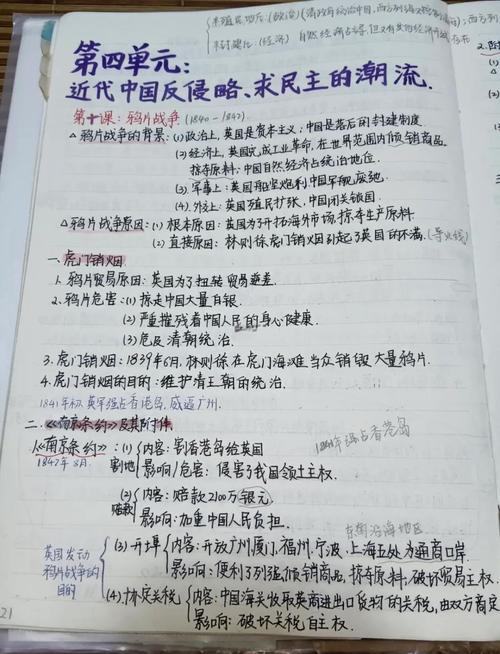 半殖民地:(政治)
半封建化:(经济) 自然经济占主导,
第四单元:
近代中国反侵略、求民主的潮流.
第十课:鸦片战争(1840-1842)
△鸦片战争的背景:(1)政治上,英国是资本主义;中国是落后的封建制度.
(2)经济上,英国完成工业革命,在世界范围内倾销商品,
掠夺原料;中国自然经济占统治地位.
(3)军事上:英国船坚炮利,中国军舰废弛.
(4)外交上:英国殖民扩张,中国闭关锁国.
△鸦片战争原因:(1)根本原因:英国为了开拓海外市场,掠夺生产原料
(2)直接原因:林则徐虎门销烟引起了英国的不满.(导火线)
一、虎门销烟
1.鸦片贸易原因:英国为了扭转贸易逆差.
2.鸦片危害:(1)掠走中国大量白银.
(2)严重摧残着中国人民的身心健康.
(3)危及清朝统治.
3.虎门销烟:1839年6月,林则徐在虎门海滩当众销毁大量鸦片.
4.虎门销烟的目的:维护清王朝的统治.
1841年初,英军强占香港岛,威逼广州.
二、《南京条约》及其附件
1《南京条约》:(1)内容:割香港岛给英国
1841年强占香港岛
1842年8月 割地 影响/危害:侵害了我国领土主权.
(2)内容:赔款2100万银元.
赔款 影响:加重中国人民负担.
东南沿海地区
(3)开埠 内容:开放广州,厦门,福州,宁波,上海五处为通商口岸.
英国发动
鸦片战争的
目的
影响:便利了列强倾销商品,掠夺原料,破坏贸易主权.
(4)协定关税 内容:中国海关收取英商进出口货物的关税,由双方商定
影响:破坏关税自主权.
21